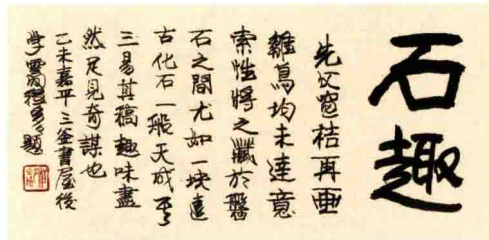 石趣
先父窓桔再画
雛鳥均未達意
索性將之藏於磐
石之間尤如一块遠
古化石一般天成乎
三易其稿趣味盡
然足見奇謀也
乙未嘉平三釜書屋後
学雲程多題